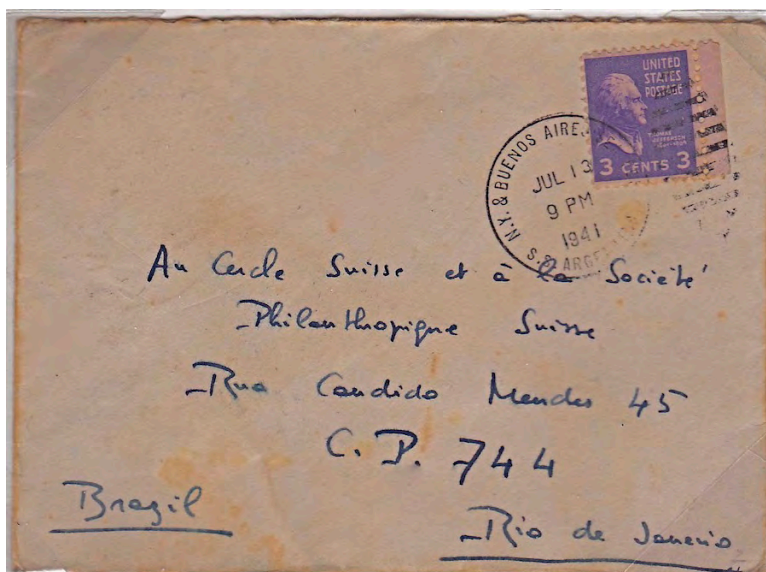 UNITED
STATES
POSTAGE
THOMAS
JEFFERSON
3 CENTS 3
N.Y. & BUENOS AIRE
JUL 13
9 PM
1941
S.S. ARGENTINA
Au Cercle Suisse et à la Société
Philanthropique Suisse
Rua Candido Mendes 45
C. P. 744
Brazil
Rio de Janeiro